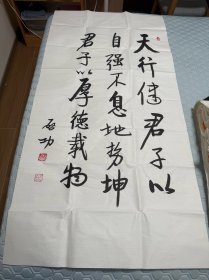 天行健君子以
自强不息地势坤
君子以厚德载物
启功